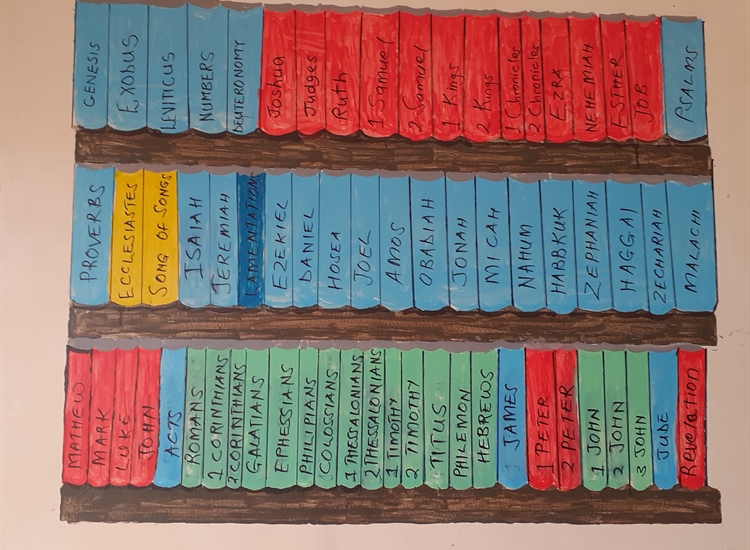 GENESIS
EXODUS
LEVITICUS
NUMBERS
DEUTERONOMY
Joshua
Judges
Ruth
1 Samuel
2 Samuel
1 Kings
2 Kings
1 Chronicles
2 Chronicles
EZRA
NEHEMIAH
ESTHER
JOB
PSALMS
PROVERBS
ECCLESIASTES
SONG OF SONGS
ISAIAH
JEREMIAH
LAMENTATION
EZEKIEL
DANIEL
HOSEA
JOEL
AMOS
OBADIAH
JONAH
MICAH
NAHUM
HABBKUK
ZEPHANIAH
HAGGAI
ZECHARIAH
MALACHI
MATHEW
MARK
LUKE
JOHN
ACTS
ROMANS
1 CORINTHIANS
2 CORINTHIANS
GALATIANS
EPHESSIANS
PHILIPIANS
COLOSSIANS
1 THESSALONIANS
2 THESSALONIANS
1 TIMOTHY
2 TIMOTHY
TITUS
PHILEMON
HEBREWS
JAMES
1 PETER
2 PETER
1 JOHN
2 JOHN
3 JOHN
JUDE
Revelation